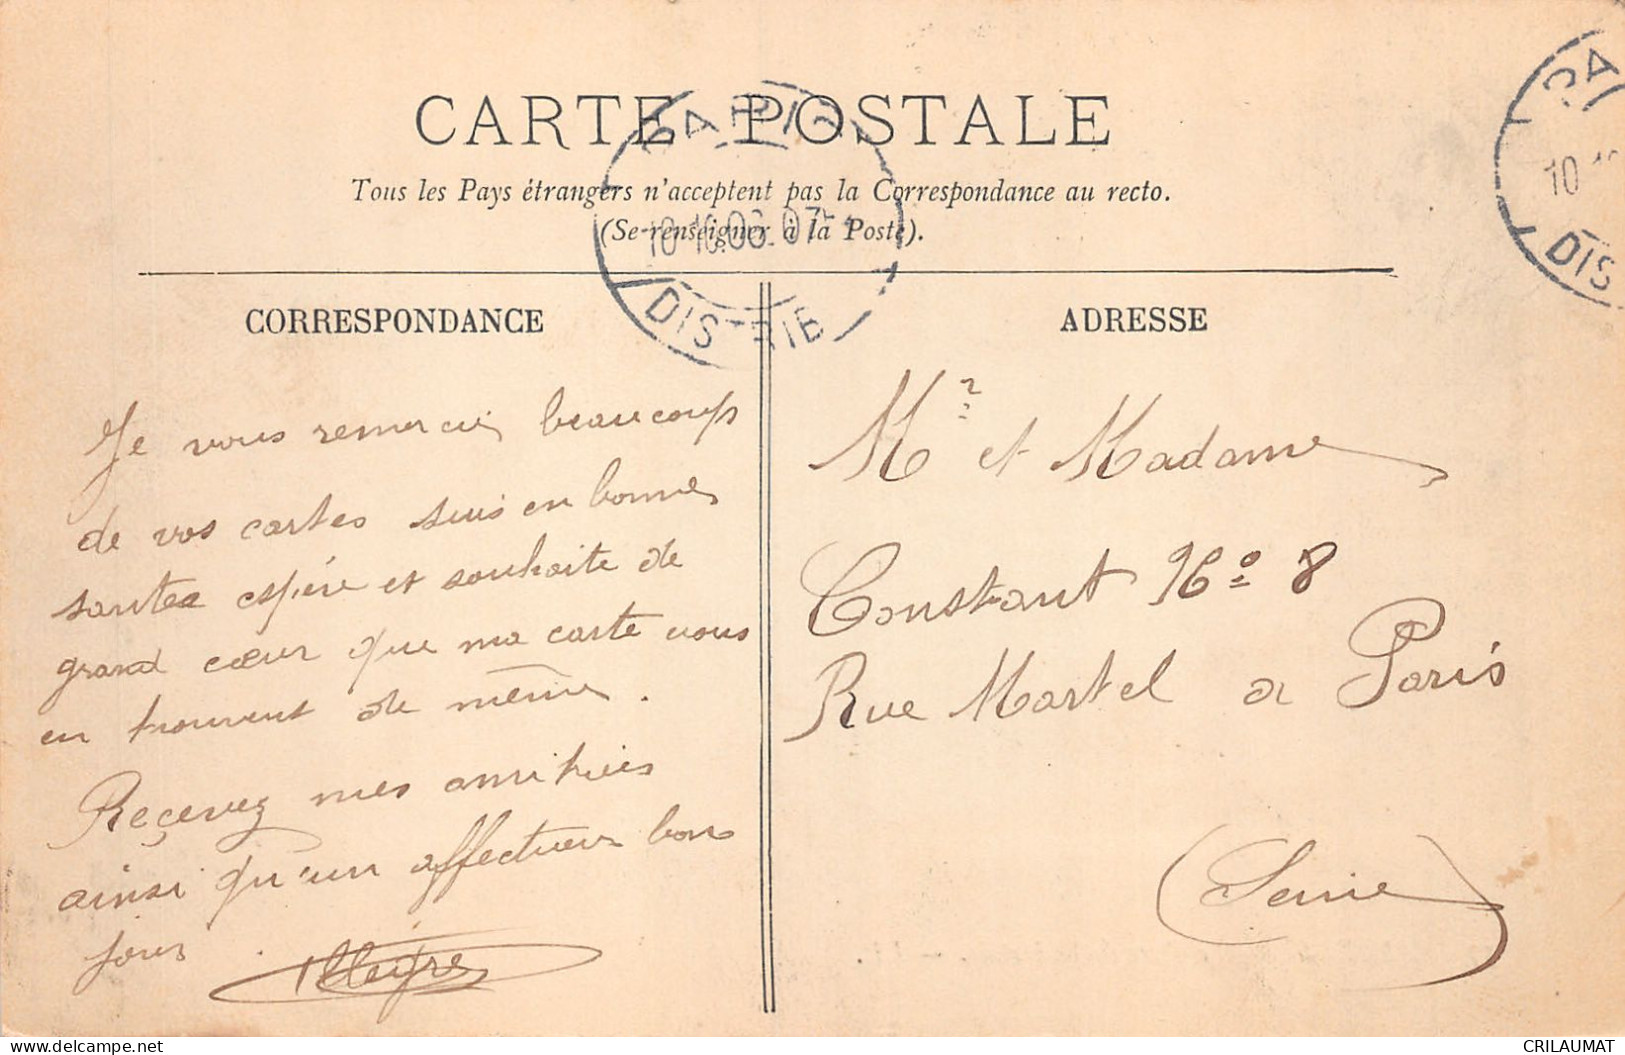 CARTE POSTALE
Tous les Pays étrangers n'acceptent pas la Correspondance au recto.
(Se renseigner à la Poste).
PARIS
10-10.06. 07
DISTRIB
PA
10
DIS
CORRESPONDANCE
Je vous remercie beaucoups
de vos cartes suis en bonne
santee espére et souhaite de
grand cœur que ma carte vous
en trouvent de même.
Recevez mes amitiées
ainsi qu'un affectueux bon
jour
ADRESSE
Mr et Madame
Constant No 8
Rue Martel a Paris
(Seine)
CRILAUMAT
delcampe.net